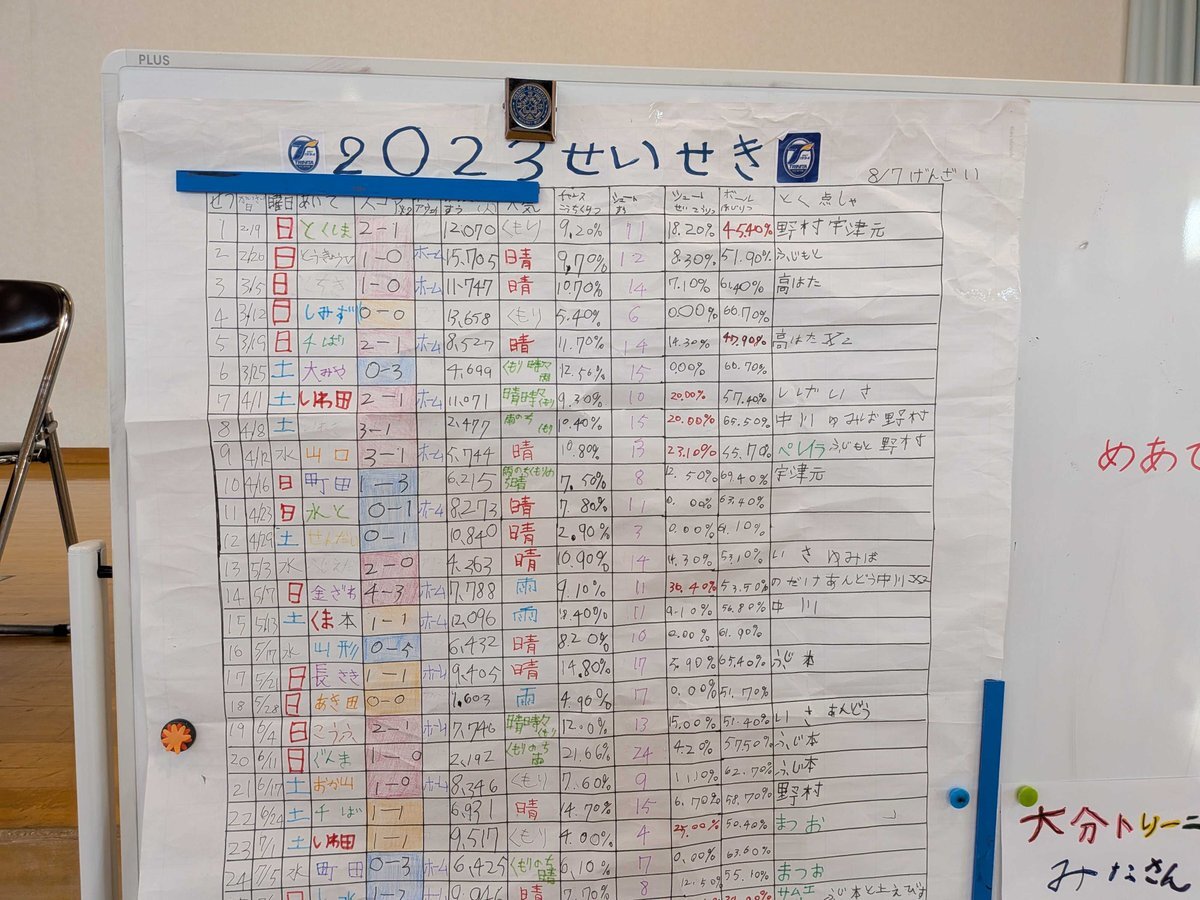 PLUS
2023せいせき
8/7 げんざい
せつ 日 曜日 あいて スコア 天気 チャンス こうちくりつ シュート すう シュート せいこうりつ ボール しじりつ とく点しゃ
1 2/19 日 とくしま 2-1 12,070 くもり 9.20% 11 18.20% 45.40% 野村 宇津元
2 2/26 日 1-0 ホーム 15,705 晴 9.70% 12 8.30% 51.90% ふじもと
3 3/5 日 1-0 ホーム 11,747 晴 10.70% 14 7.10% 61.40% 高はた
4 3/12 日 しみず 0-0 13,658 くもり 5.40% 6 0.00% 60.70%
5 3/19 日 ちば 2-1 ホーム 8,527 晴 11.70% 14 14.30% 47.90% 高はた×2
6 3/25 土 大みや 0-3 4,699 くもり時々雨 12.50% 15 0.00% 60.70%
7 4/1 土 いわ田 2-1 ホーム 11,071 晴時々くもり 9.30% 10 20.00% 57.40% いさ
8 4/8 土 3-1 2,477 雨のちくもり 10.40% 15 20.00% 65.50% 中川 ゆみば 野村
9 4/12 水 山口 3-1 ホーム 5,744 晴 10.80% 13 23.10% 55.70% ペレイラ ふじもと 野村
10 4/16 日 町田 1-3 6,215 7.50% 8 12.50% 69.40% 宇津元
11 4/23 日 水と 0-1 ホーム 8,273 晴 7.80% 11 0.00% 63.40%
12 4/29 土 せんだい 0-1 10,840 晴 2.90% 3 0.00% 61.10%
13 5/3 水 2-0 4,363 晴 10.90% 14 14.30% 53.10% いさ ゆみば
14 5/7 日 金ざわ 4-3 ホーム 7,788 雨 9.10% 11 36.40% 53.50% のせ あんどう 中川×2
15 5/13 土 くま本 1-1 ホーム 12,096 雨 18.40% 11 9.10% 56.80% 中川
16 5/17 水 山形 0-5 6,432 晴 8.20% 10 0.00% 61.90%
17 5/21 日 長さき 1-1 ホーム 9,405 晴 14.80% 17 5.90% 65.40% ふじ本
18 5/28 日 あき田 0-0 1,603 雨 4.90% 17 0.00% 51.70%
19 6/4 日 こうふ 2-1 ホーム 7,746 晴時々くもり 12.00% 13 15.00% 51.40% いさ あんどう
20 6/11 日 ぐんま 1-0 2,192 くもりのち雨 21.66% 24 4.20% 57.50% ふじ本
21 6/17 土 おか山 1-0 ホーム 8,346 くもり 7.60% 9 11.10% 62.70% ふじ本
22 6/24 土 千ば 1-1 6,931 晴 14.70% 15 6.70% 58.70% 野村
23 7/1 土 いわ田 1-1 9,517 くもり 4.00% 4 25.00% 50.40% まつお
24 7/5 水 町田 0-3 ホーム 6,425 くもりのち晴 6.10% 7 0.00% 63.60%
1-3 ホーム 晴 7.70% 8 12.50% 55.10% まつお
サムエ ふじ本
めあて
大分トリーニ
みなさん